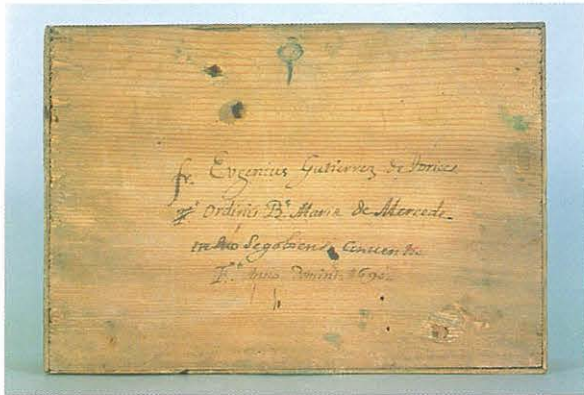 fr. Eugenius Gutierrez de Torices
Ordinis B.ᵉ Maria de Mercede
in Segobiensi Conventu
F.ᵗ Anno Domini 169